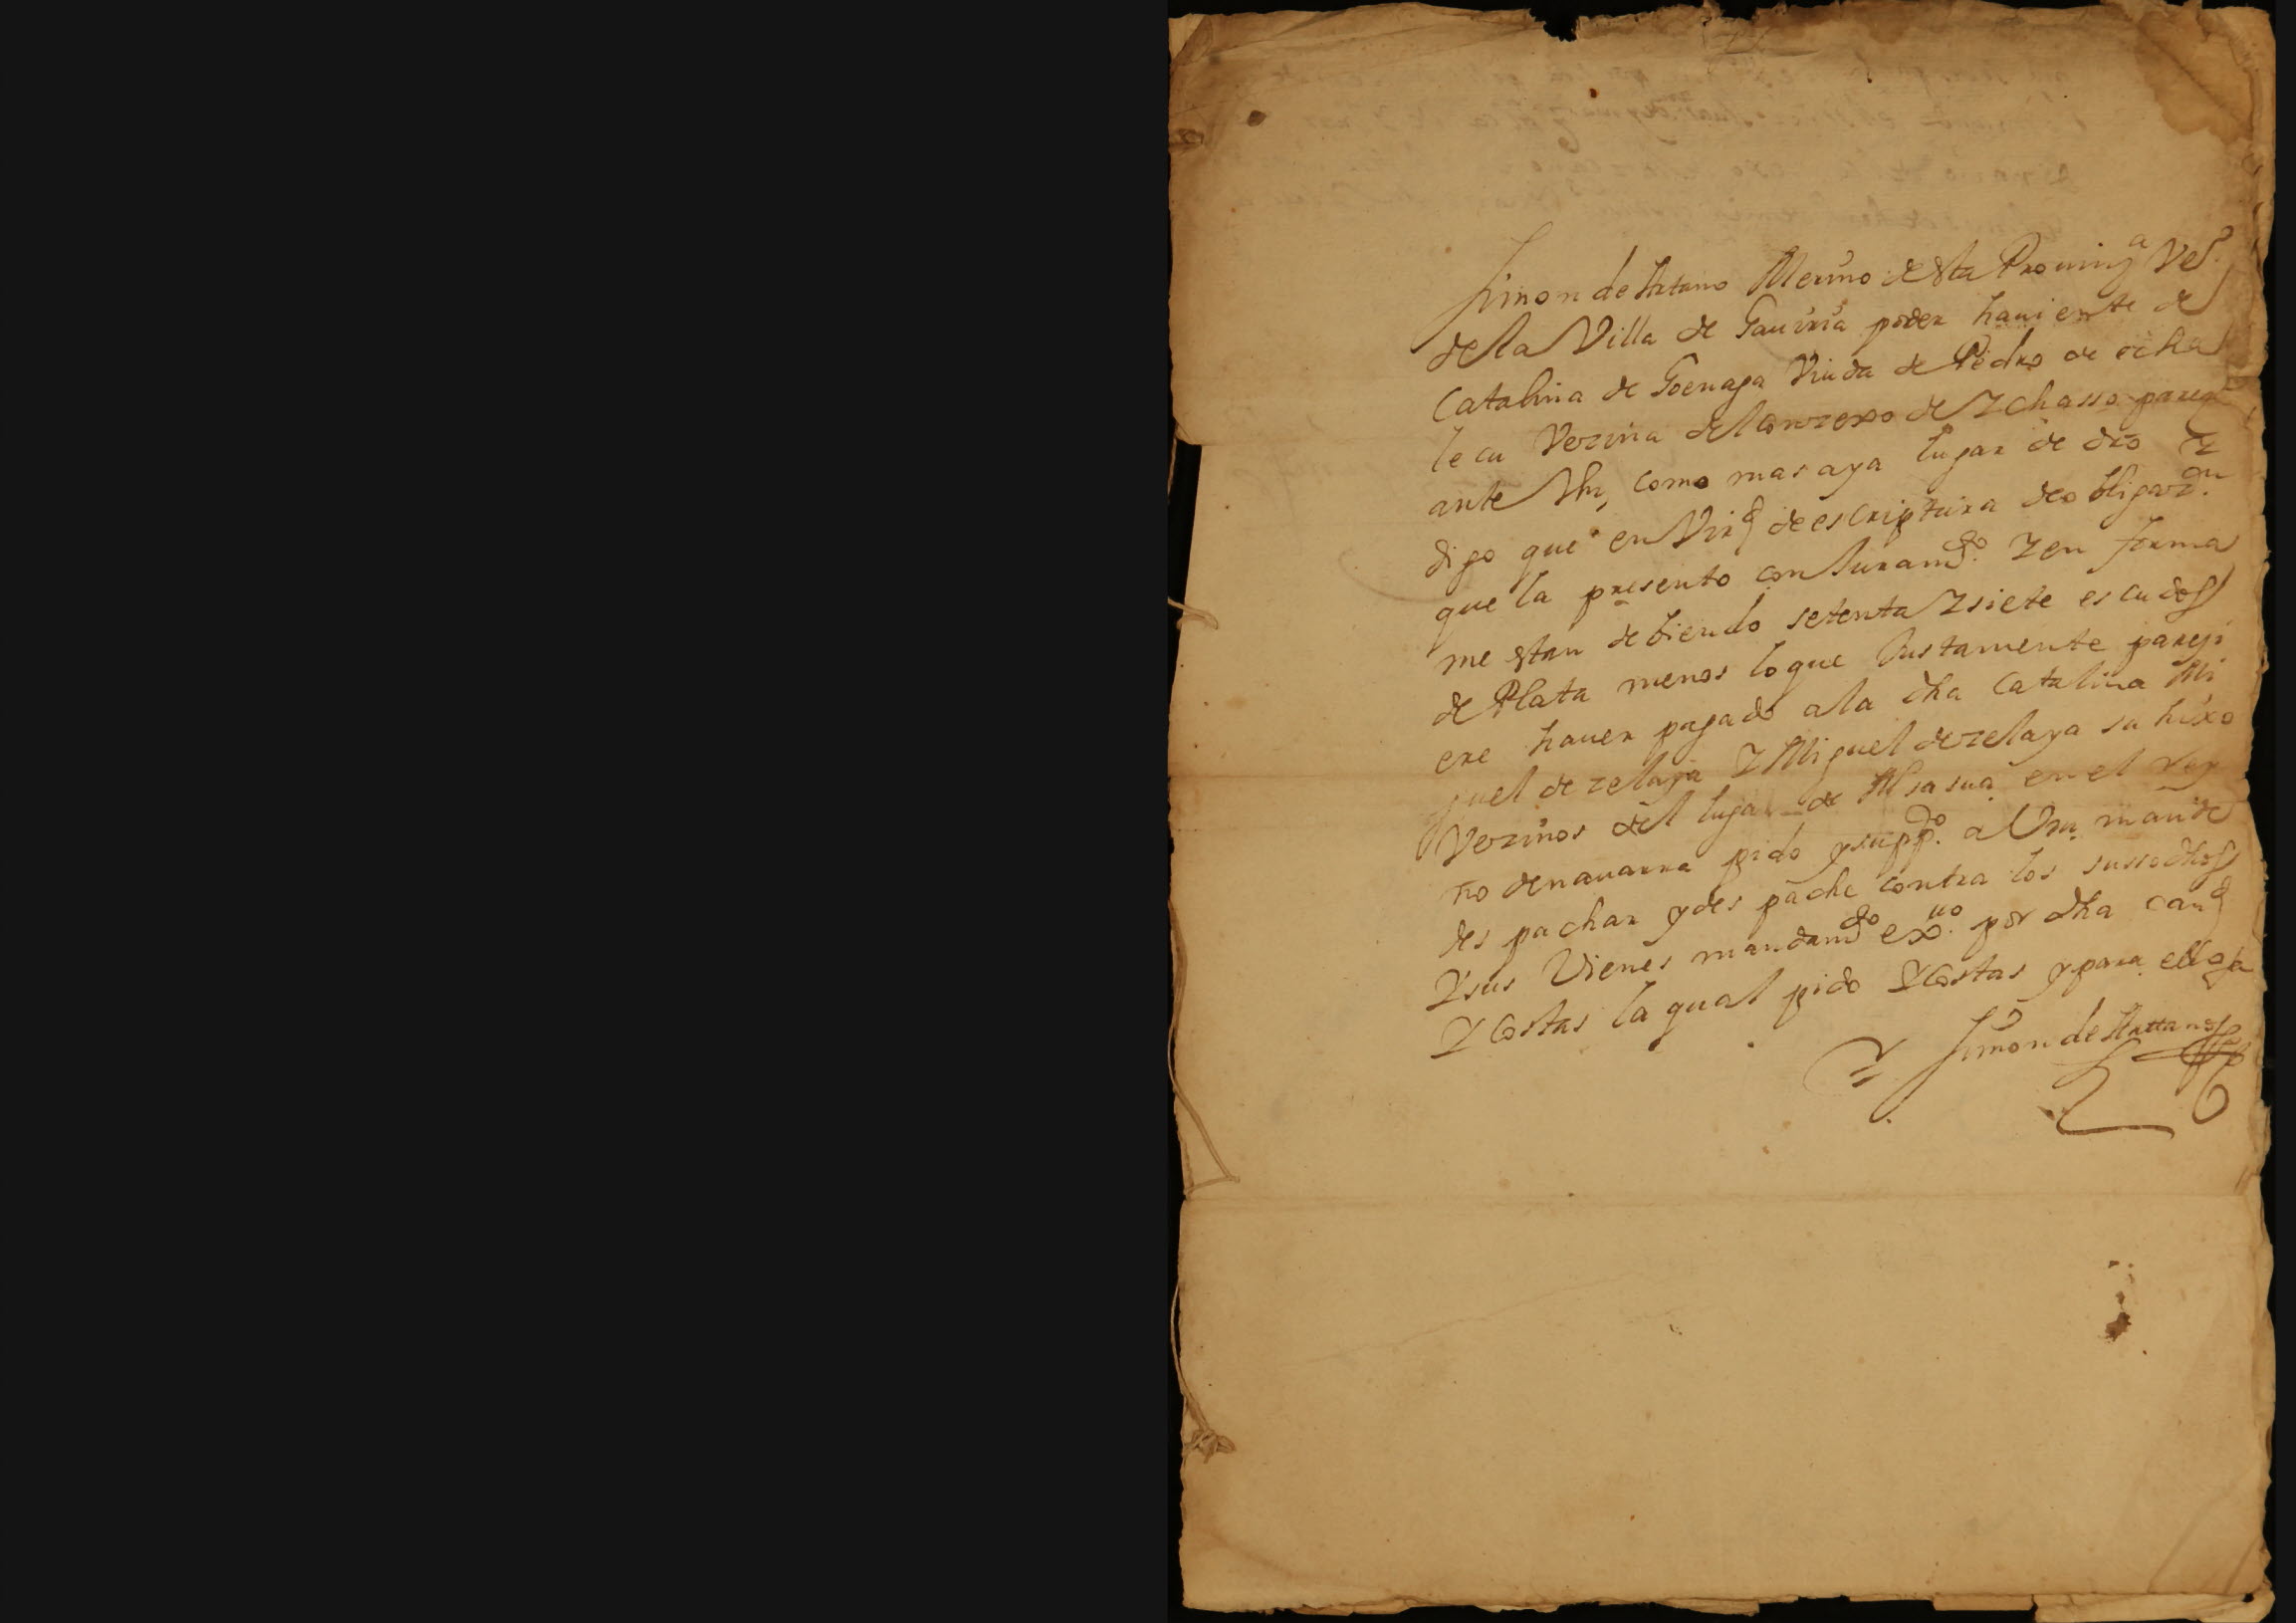 Simon de Artano Merino de esta Prouinçª Veº
de la Villa de Gauiria poder hauiente de
Catalina de Goenaga Viuda de Pedro de ocha
lecu Vezina del conzexo de Ychasso parez
ante Vm, como mas aya lugar de dro Y
digo que en Virᵈ de escriptura de obligazᵒⁿ
que la presento con Juramᵗᵒ Y en forma
me estan debiendo setenta Y siete escudos
de Plata menos lo que Justamente pareçi
ere hauer pagado a la dha Catalina Mi
guel de zelaya Y Miguel de zelaya su hixo
Vezinos del lugar de Alsasua en el Rey
no de nauarra pido y suppᶜᵒ a Vm mande
des pachar y des pache contra los sussodhos
Y sus Vienes mandamᵗᵒ exᵘᵒ por dha canᵈ
Y Costas la qual pido Y Costas y para ello &a
Simon de Arttano